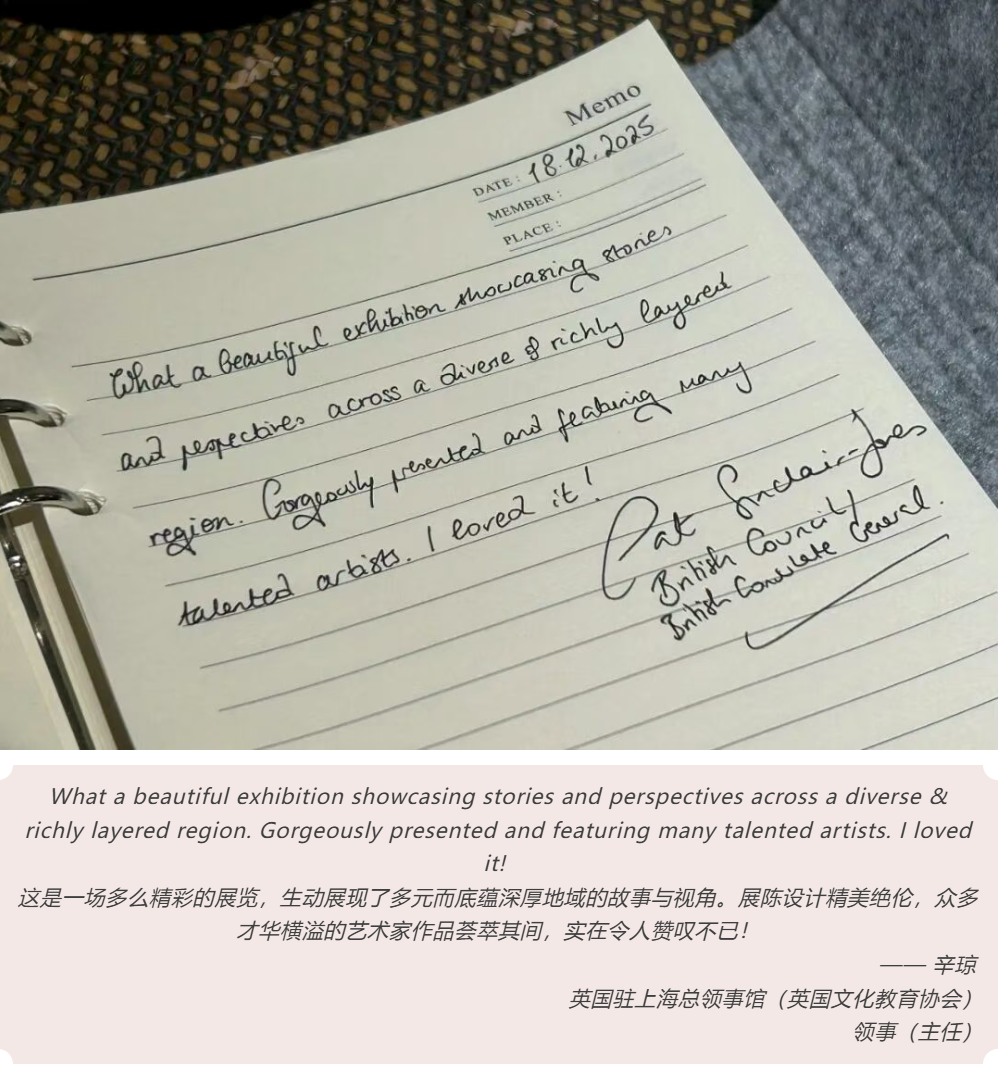 Memo
DATE : 18.12.2025
MEMBER :
PLACE :
What a beautiful exhibition showcasing stories
and perspectives across a diverse & richly layered
region. Gorgeously presented and featuring many
talented artists. I loved it!
Cat Sinclair-Jones
British Council/
British Consulate General.
What a beautiful exhibition showcasing stories and perspectives across a diverse &
richly layered region. Gorgeously presented and featuring many talented artists. I loved
it!
这是一场多么精彩的展览，生动展现了多元而底蕴深厚地域的故事与视角。展陈设计精美绝伦，众多
才华横溢的艺术家作品荟萃其间，实在令人赞叹不已！
—— 辛琼
英国驻上海总领事馆（英国文化教育协会）
领事（主任）